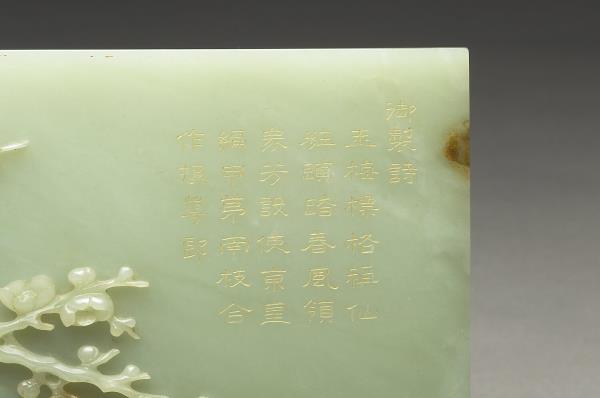 御製詩
玉梅標格稱仙
粧頭踏春風領
衆芳設使東皇
編甲第南枝合
作探華郎